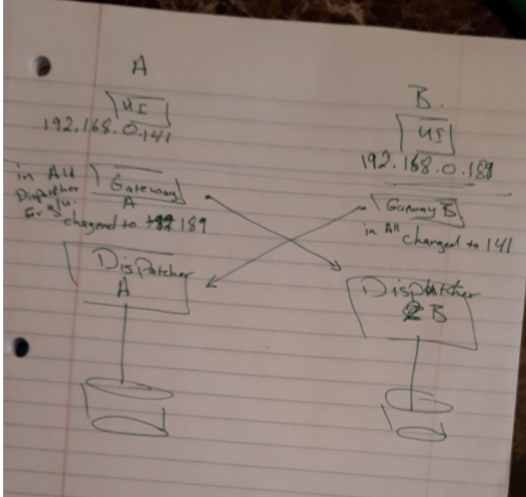 A
UI
192.168.0.141
in All
Dispatcher
Gateway
A
changed to 189
Dispatcher
A
B.
UI
192.168.0.189
Gateway B
in All changed to 141
Dispatcher
B